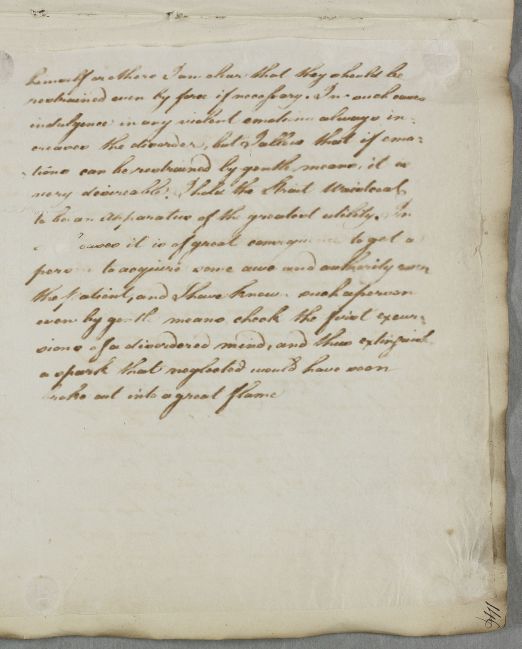 himself or others I am clear that they should be
restrained even by force if necessary. In such cases
indulgence in any violent emotions always in-
creases the disorder, but I allow that if emo-
tions can be restrained by gentle means, it is
very desireable. I hold the Strait Waistcoat
to be an apparatus of the greatest utility. In
cases it is of great consequence to get a
person to acquire some awe and authority over
the Patient, and I have known such a person
even by gentle means check the first excur-
sions of a disordered mind, and thus extinguish
a spark that neglected would have soon
broke out into a great flame